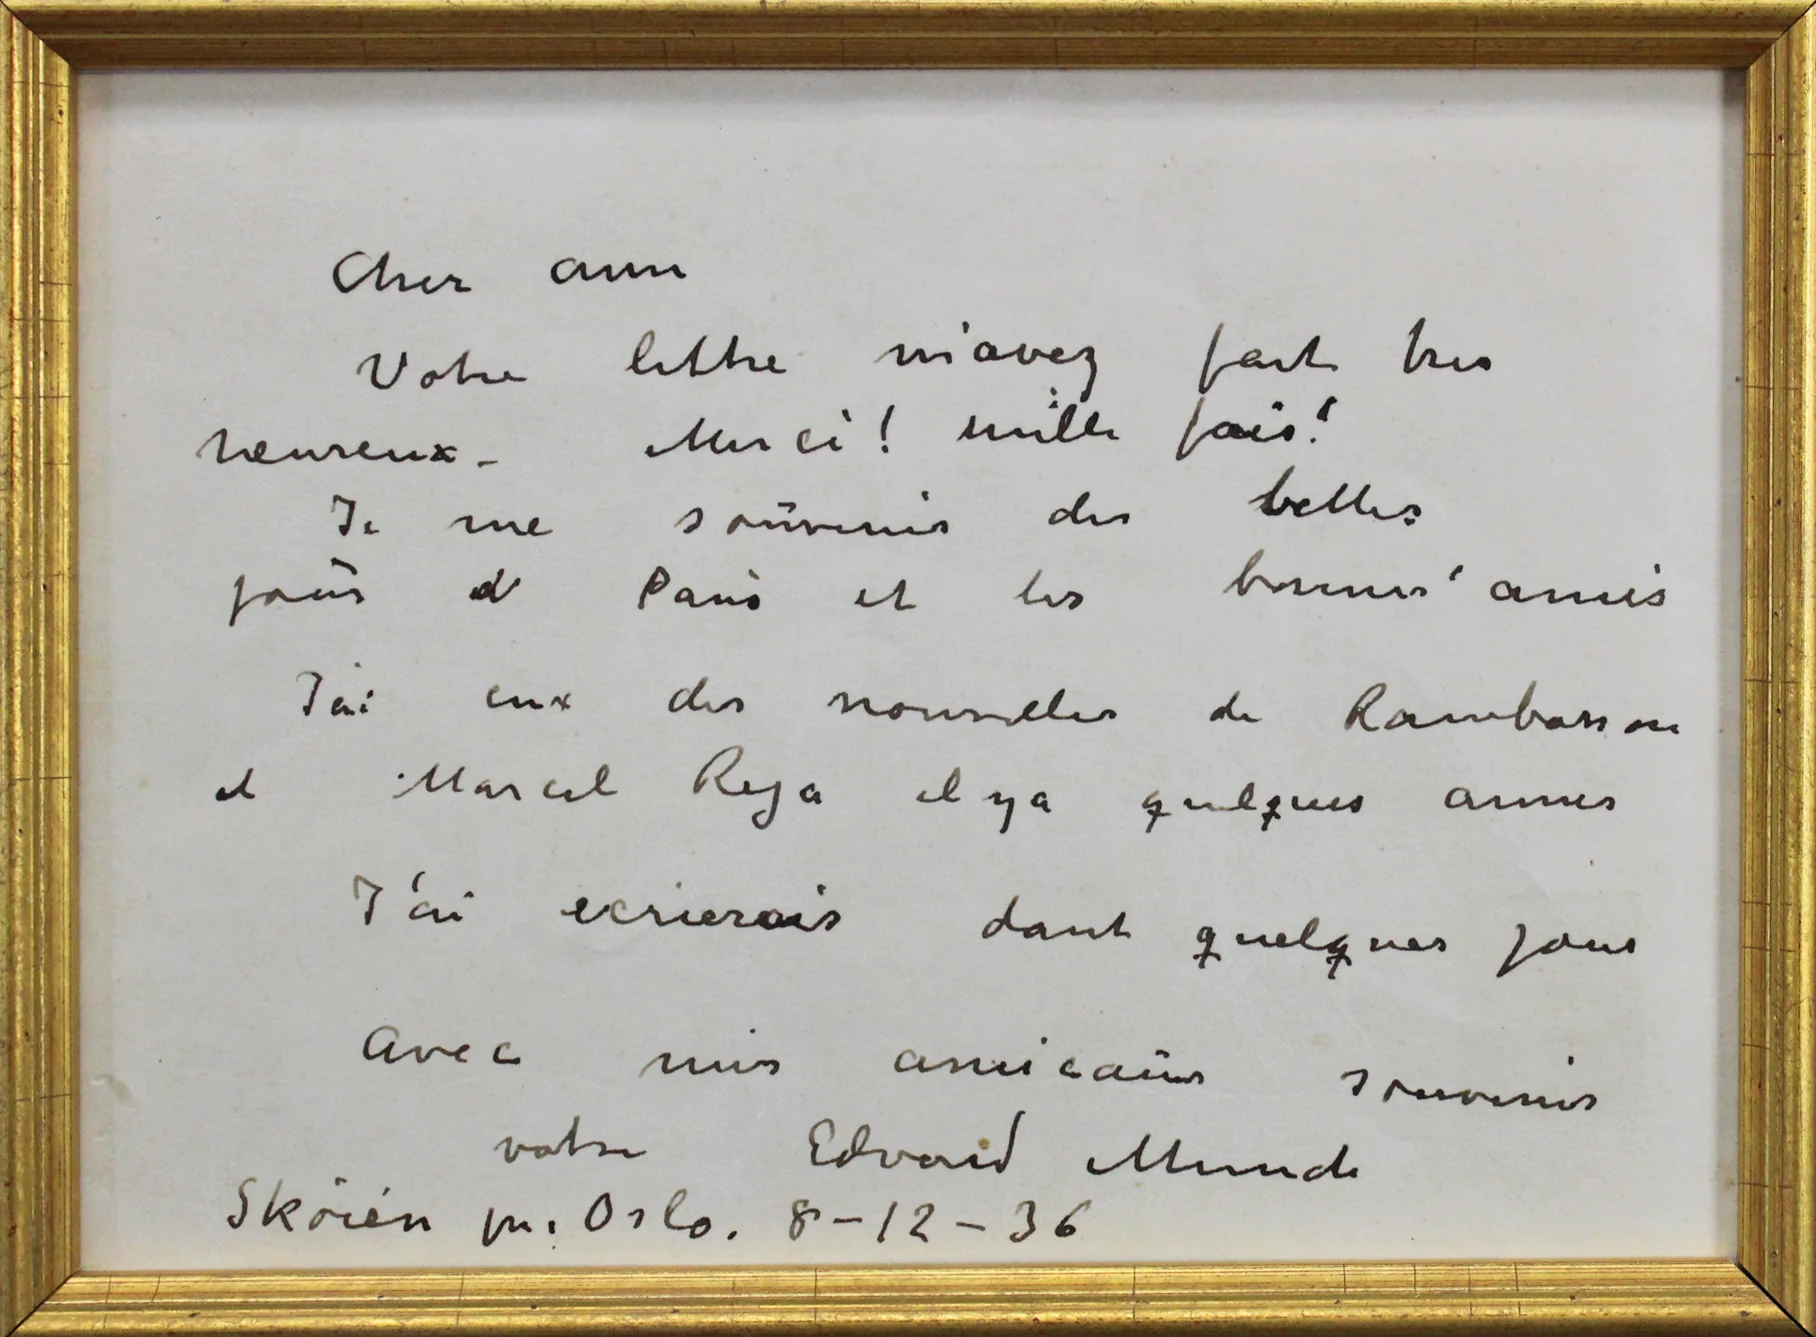 Cher ami
Votre lettre m'avez fait tres
heureux - Merci! mille fois!
Je me souvenir des belles
jours d Paris et les bonnes amis
J'ai eux des nouvelles de Rambosson
et Marcel Reja il y a quelques annes
J'ai ecrierais dant quelques jours
Avec mes amicaux souvenirs
votre Edvard Munch
Skøien pr. Oslo. 8-12-36